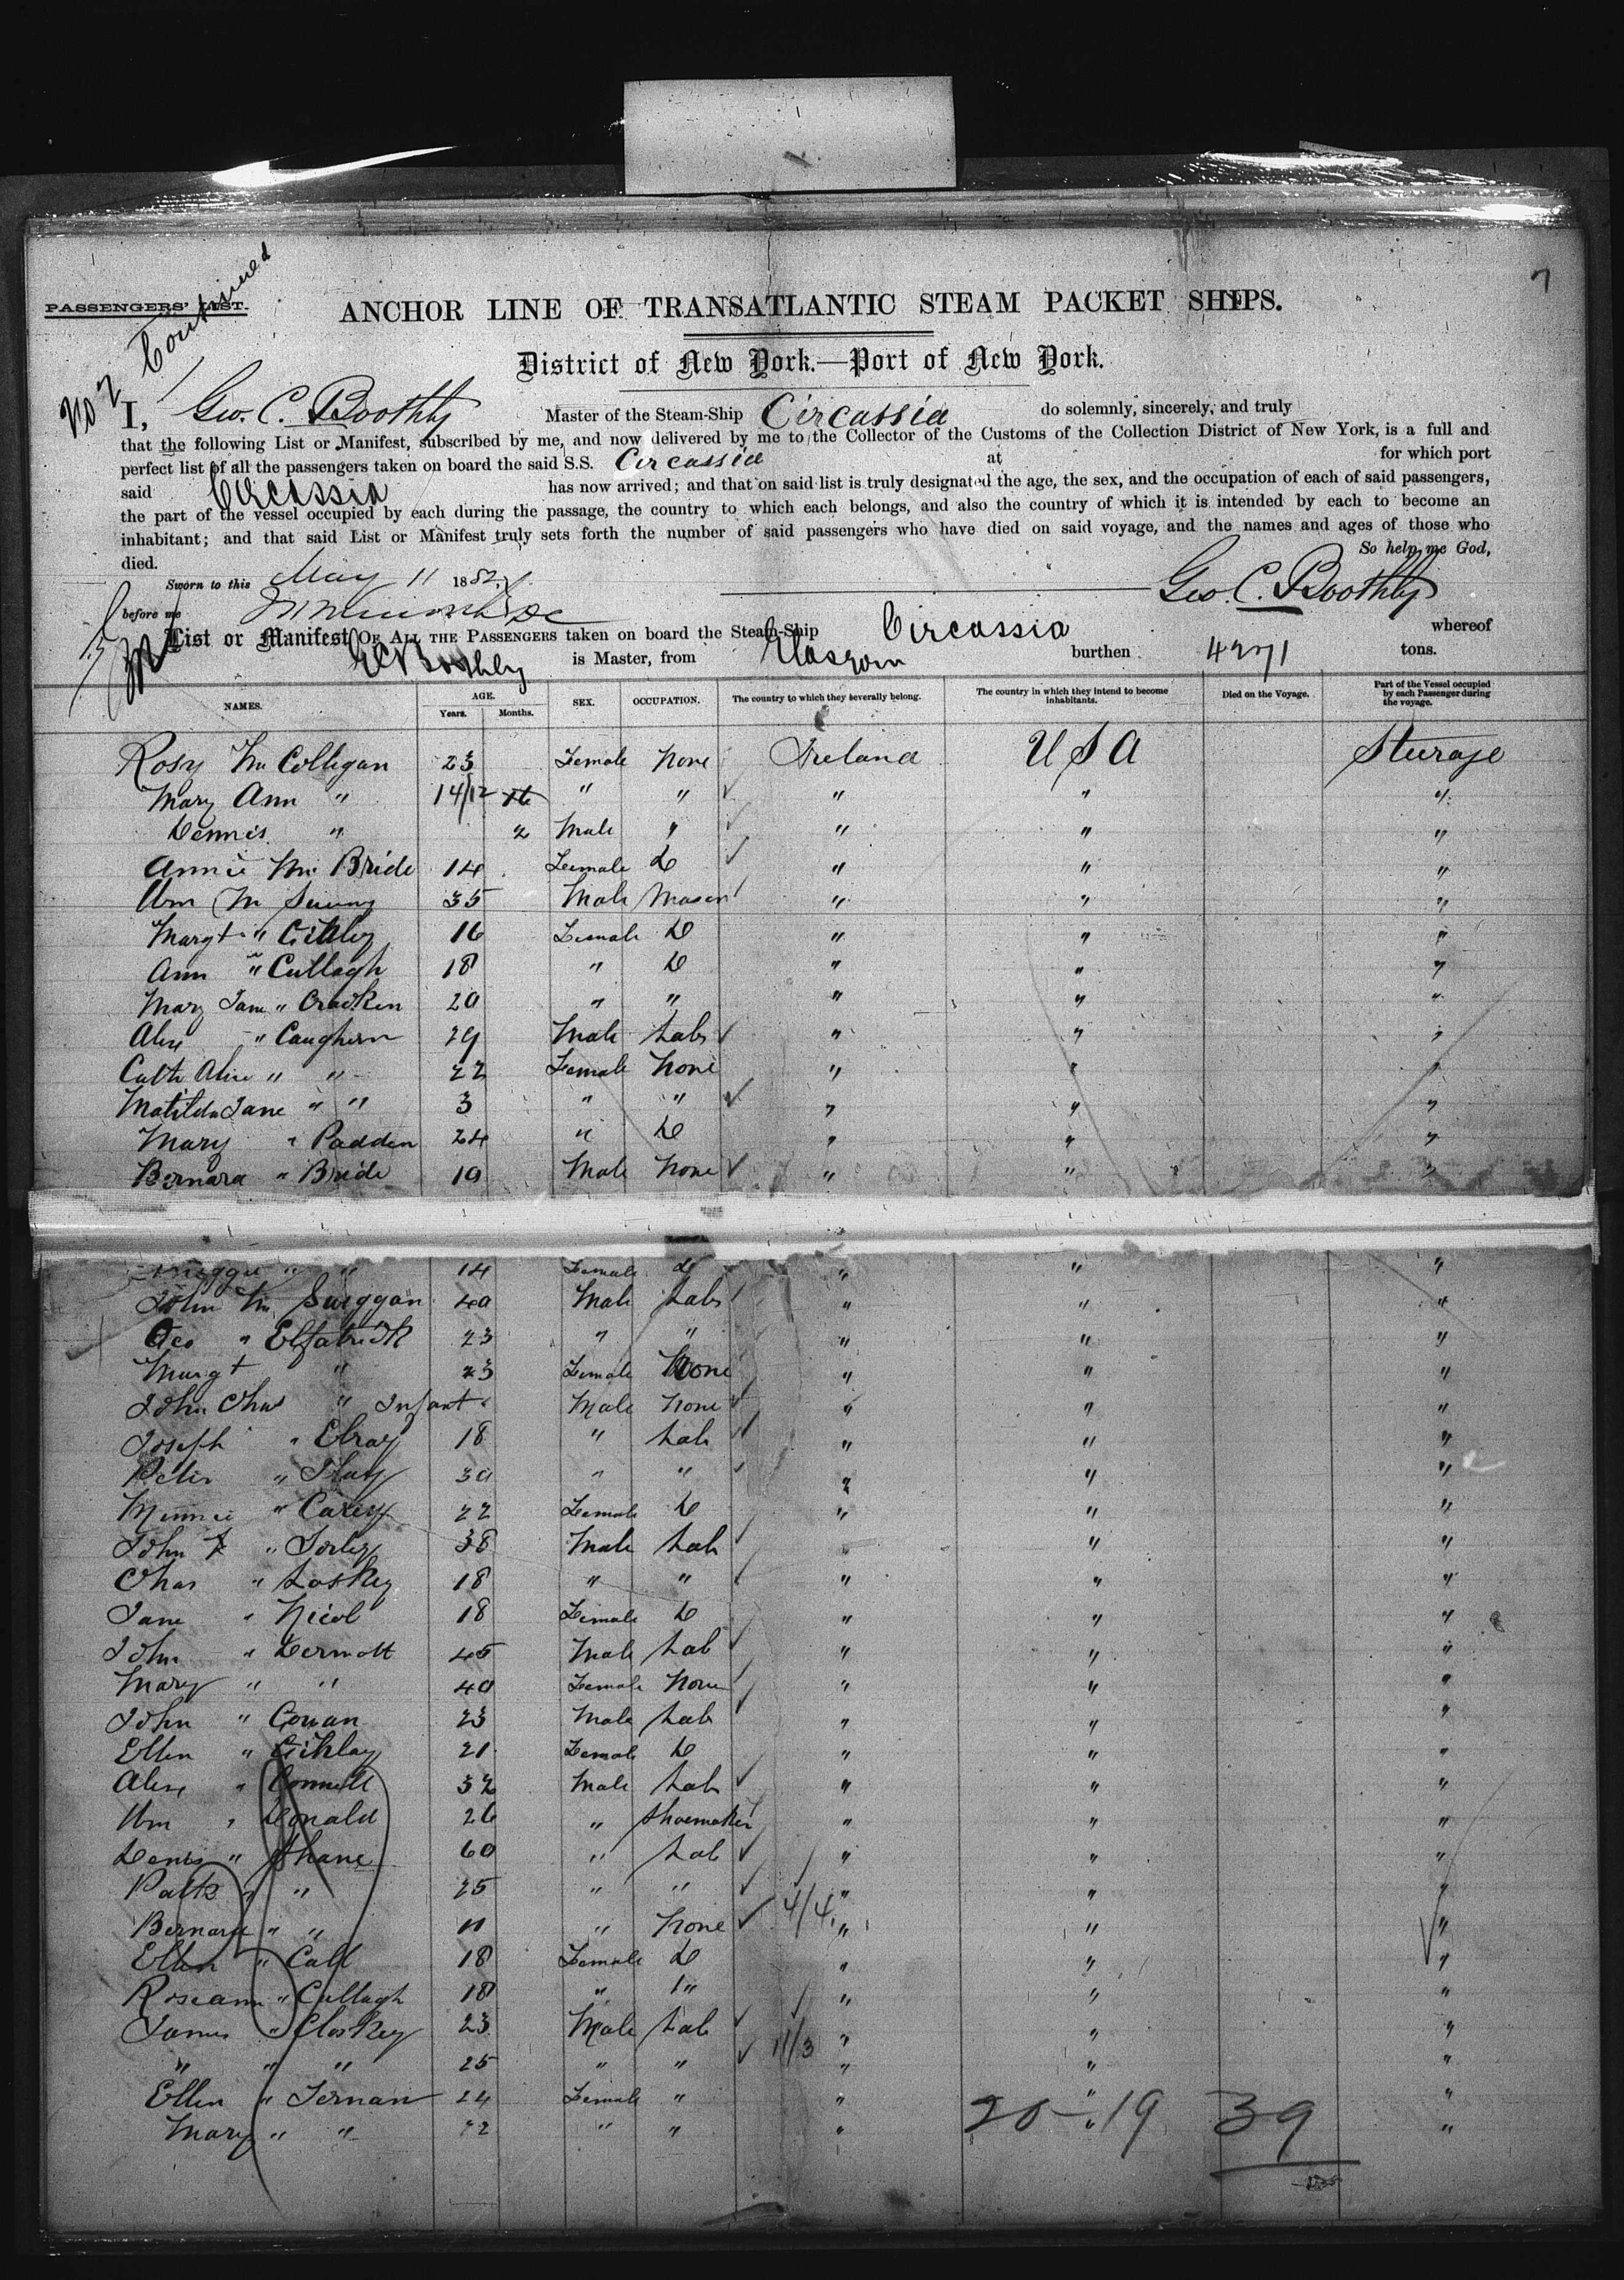 7
PASSENGERS' LIST.
No 2 Continued
ANCHOR LINE OF TRANSATLANTIC STEAM PACKET SHIPS.
District of New York.—Port of New York.
I, Geo. C. Boothby Master of the Steam-Ship Circassia do solemnly, sincerely, and truly
that the following List or Manifest, subscribed by me, and now delivered by me to the Collector of the Customs of the Collection District of New York, is a full and
perfect list of all the passengers taken on board the said S.S. Circassia at for which port
said Circassia has now arrived; and that on said list is truly designated the age, the sex, and the occupation of each of said passengers,
the part of the vessel occupied by each during the passage, the country to which each belongs, and also the country of which it is intended by each to become an
inhabitant; and that said List or Manifest truly sets forth the number of said passengers who have died on said voyage, and the names and ages of those who
died. So help me God,
Sworn to this May 11 1882 Geo. C. Boothby
before me
List or Manifest OF ALL THE PASSENGERS taken on board the Steam-Ship Circassia whereof
Boothby is Master, from Glasgow burthen 4271 tons.
NAMES. AGE. Years. Months. SEX. OCCUPATION. The country to which they severally belong. The country in which they intend to become inhabitants. Died on the Voyage. Part of the Vessel occupied by each Passenger during the voyage.
Rosy Mc Colligan 23 Female None Ireland U S A Steerage
Mary Ann " 14/12 " " " " "
Dennis " 2 Male " " " "
Annie Mc Bride 14 Female Do " " "
Wm Mc 35 Male Mason " " "
Margt " Ginley 16 Female Do " " "
Ann " Cullagh 18 " Do " " "
Mary Jane " Cracken 20 " " " " "
Alex " Caughern 29 Male Labr " " "
Cath Alice " " 22 Female None " " "
Matilda Jane " " 3 " " " " "
Mary " Padden 24 " Do " " "
Bernard " Bride 10 Male None " " "
Maggie " " 14 Female Do " " "
John Mc Swiggan 40 Male Labr " " "
Geo " Elfatrick 23 " " " " "
Margt " 23 Female None " " "
John Chas " Infant Male None " " "
Joseph " Elroy 18 " Lab " " "
Peter " 30 " " " " "
Minnie " Carey 22 Female Do " " "
John " Sorley 38 Male Lab " " "
Chas " Loskey 18 " " " " "
Jane " Nicol 18 Female Do " " "
John " Dermott 45 Male Lab " " "
Mary " " 40 Female None " " "
John " Cowan 23 Male Lab " " "
Ellen " Ginlay 21 Female Do " " "
Alex " Connell 32 Male Lab " " "
Wm " Donald 26 " Shoemaker " " "
Denis " Shane 60 " Lab " " "
Patk " " 25 " " " " "
Bernard " " 11 " None 4/4 " " "
Ellen " Call 18 Female Do " " "
Roseann " Cullagh 18 " " " " "
James " Closkey 23 Male Lab " " "
" " " 25 " " 11/3 " " "
Ellen " Ternan 24 Female " " " "
Mary " " 22 " " " " "
20 - 19 39